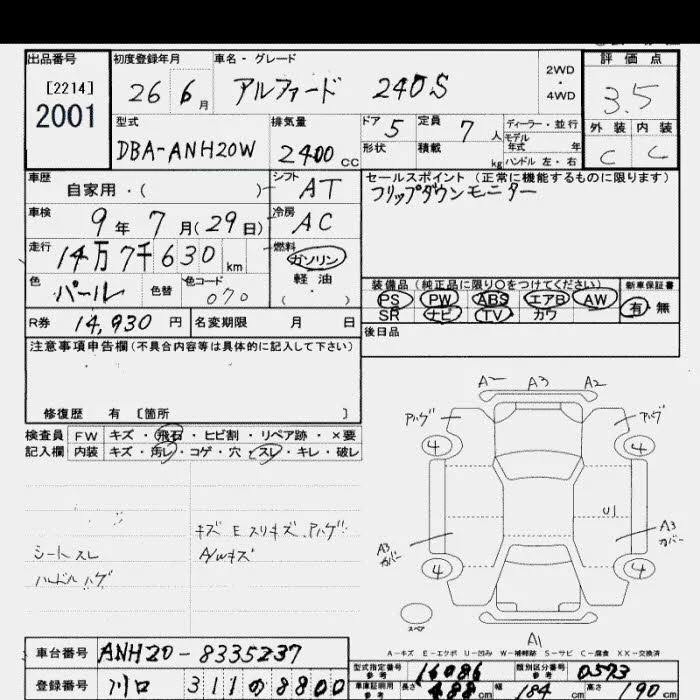 出品番号 初度登録年月 車名・グレード 評価点
[2214] 26 6月 アルファード 240S 2WD・4WD 3.5
2001 外装 内装
型式 排気量 ドア 5 定員 7人 ディーラー・並行
DBA-ANH20W 2400cc 形状 積載 kg モデル年式 年 ハンドル 左・右 C C
車歴 自家用・( ) シフト AT セールスポイント (正常に機能するものに限ります)
フリップダウンモニター
車検 9年7月(29日) 冷房 AC
走行 14万7千630km 燃料 ガソリン
軽油
・
( )
色 パール 色替 色コード 070 装備品 (純正品に限り○をつけてください) 新車保証書
PS PW ABS エアB AW 有・無
SR ナビ TV カワ
R券 14,930円 名変期限 月 日 後日品
注意事項申告欄(不具合内容等は具体的に記入して下さい)
修復歴 有 [箇所 ]
検査員 FW キズ・飛石・ヒビ割・リペア跡・×要
記入欄 内装 キズ・汚レ・コゲ・穴・スレ・キレ・破レ
A- A3 A2
アハゲ アハゲ
4 4
キズ E スリキズ.アハゲ U1
シートスレ A/Wキズ A3カバー A3カバー
ハンドルハゲ 4 4
スペア
A1
A-キズ E-エクボ U-凹み W-補修跡 S-サビ C-腐食 XX-交換済
車台番号 ANH20-8335237 型式指定番号 参考 16086 類別区分番号 参考 0573
登録番号 川口 311の8800 車庫証明用 参考 長さ 488cm 幅 184cm 高さ 190cm